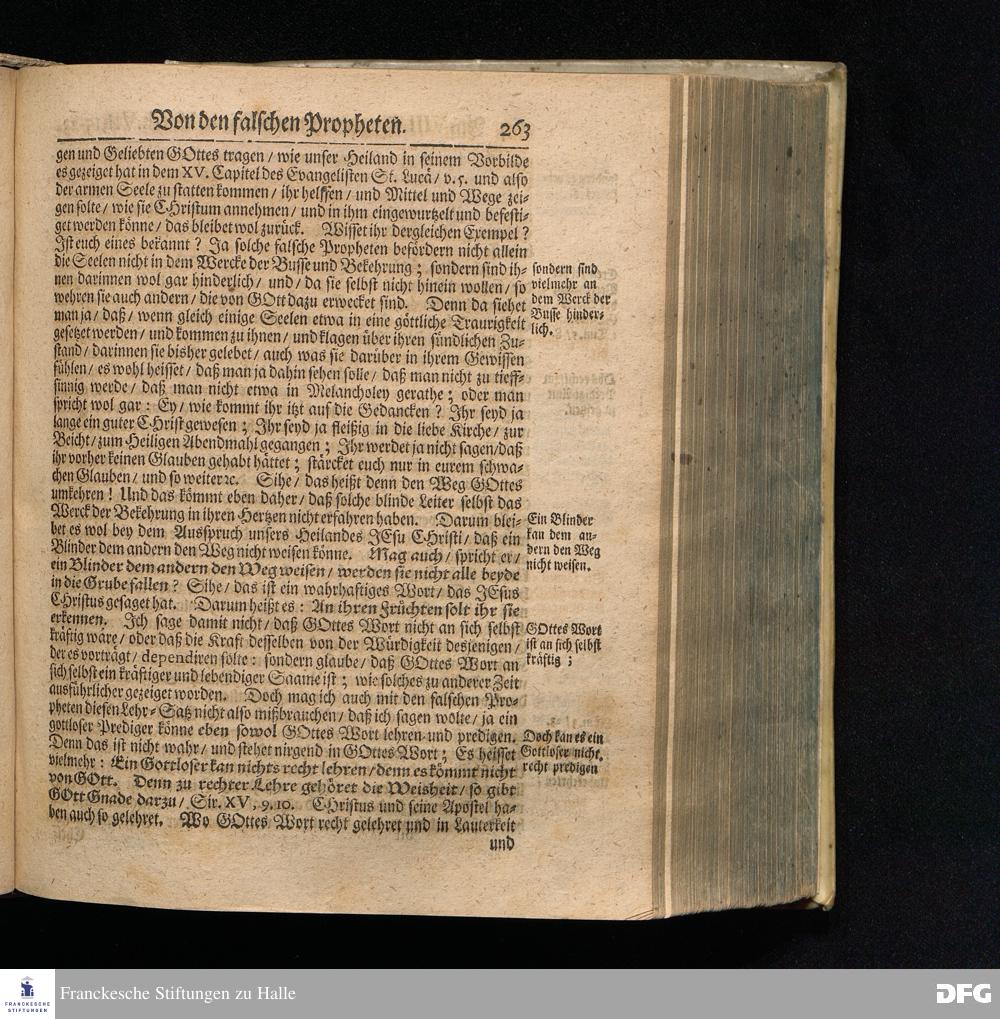 Von den falschen Propheten. 263
gen und Geliebten GOttes tragen / wie unser Heiland in seinem Vorbilde
es gezeiget hat in dem XV. Capitel des Evangelisten St. Lucä / v. 5. und also
der armen Seele zu statten kommen / ihr helffen / und Mittel und Wege zei-
gen solte / wie sie CHristum annehmen / und in ihm eingewurtzelt und befesti-
get werden könne / das bleibet wol zurück. Wisset ihr dergleichen Exempel ?
Ist euch eines bekannt ? Ja solche falsche Propheten befördern nicht allein
die Seelen nicht in dem Wercke der Busse und Bekehrung ; sondern sind ih-
nen darinnen wol gar hinderlich / und / da sie selbst nicht hinein wollen / so
wehren sie auch andern / die von GOtt dazu erwecket sind. Denn da siehet
man ja / daß / wenn gleich einige Seelen etwa in eine göttliche Traurigkeit
gesetzet werden / und kommen zu ihnen / und klagen über ihren sündlichen Zu-
stand / darinnen sie bisher gelebet / auch was sie darüber in ihrem Gewissen
fühlen / es wohl heisset / daß man ja dahin sehen solle / daß man nicht zu tieff-
sinnig werde / daß man nicht etwa in Melancholey gerathe ; oder man
spricht wol gar : Ey / wie kommt ihr itzt auf die Gedancken ? Ihr seyd ja
lange ein guter CHrist gewesen ; Ihr seyd ja fleißig in die liebe Kirche / zur
Beicht / zum Heiligen Abendmahl gegangen ; Ihr werdet ja nicht sagen / daß
ihr vorher keinen Glauben gehabt hättet ; stärcket euch nur in eurem schwa-
chen Glauben / und so weiter ꝛc. Sihe / das heißt denn den Weg GOttes
umkehren ! Und das kömmt eben daher / daß solche blinde Leiter selbst das
Werck der Bekehrung in ihren Hertzen nicht erfahren haben. Darum blei-
bet es wol bey dem Ausspruch unsers Heilandes JEsu CHristi / daß ein
Blinder dem andern den Weg nicht weisen könne. Mag auch / spricht er /
ein Blinder dem andern den Weg weisen / werden sie nicht alle beyde
in die Grube fallen ? Sihe / das ist ein wahrhaftiges Wort / das JEsus
CHristus gesaget hat. Darum heißt es : An ihren Früchten solt ihr sie
erkennen. Ich sage damit nicht / daß GOttes Wort nicht an sich selbst
kräftig wäre / oder daß die Kraft desselben von der Würdigkeit desjenigen /
der es vorträgt / dependiren solte : sondern glaube / daß GOttes Wort an
sich selbst ein kräftiger und lebendiger Saame ist ; wie solches zu anderer Zeit
ausführlicher gezeiget worden. Doch mag ich auch mit den falschen Pro-
pheten diesen Lehr-Satz nicht also mißbrauchen / daß ich sagen wolte / ja ein
gottloser Prediger könne eben sowol GOttes Wort lehren und predigen.
Denn das ist nicht wahr / und stehet nirgend in GOttes Wort ; Es heisset
vielmehr : Ein Gottloser kan nichts recht lehren / denn es kömmt nicht
von GOtt. Denn zu rechter Lehre gehöret die Weisheit / so gibt
GOtt Gnade darzu / Sir. XV, 9. 10. CHristus und seine Apostel ha-
ben auch so gelehret. Wo GOttes Wort recht gelehret und in Lauterkeit
und
sondern sind
vielmehr an
dem Werck der
Busse hinder-
lich.
Ein Blinder
kan dem an-
dern den Weg
nicht weisen.
GOttes Wort
ist an sich selbst
kräftig ;
Doch kan es ein
Gottloser nicht
recht predigen
FRANCKESCHE
STIFTUNGEN
Franckesche Stiftungen zu Halle
DFG